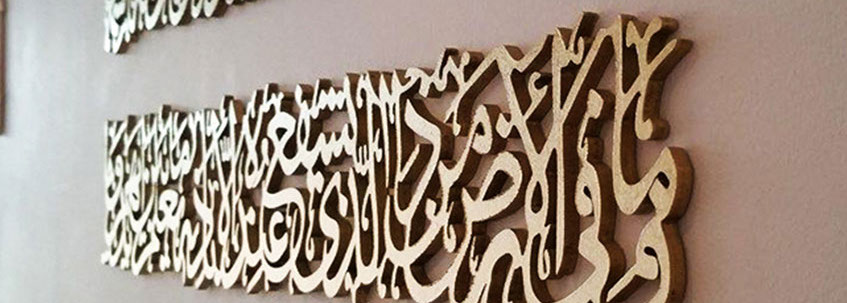 وما في الأرض من ذا الذي يشفع عنده إلا بإذنه يعلم ما بين أيديهم وما